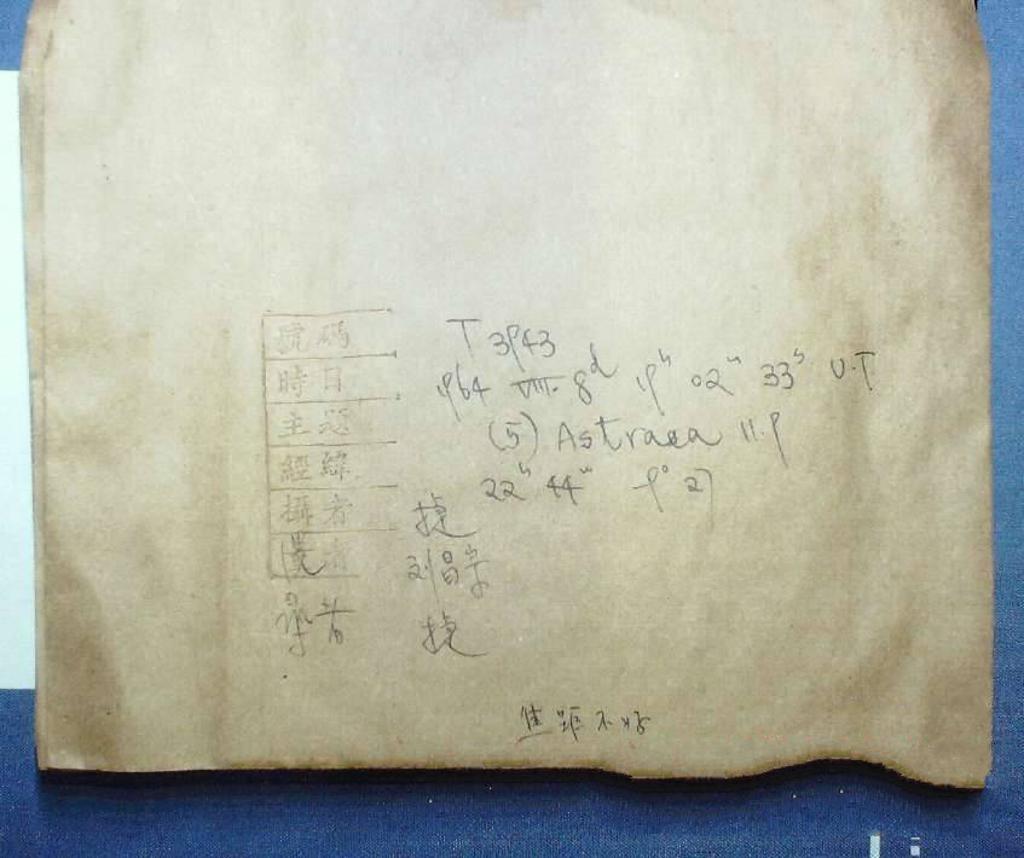 號碼 T 3943
時日 1964 VIII. 8ᵈ 19ʰ 02ᵐ 33ˢ U.T
主題 (5) Astraea 11.9
經緯 22ʰ 44ᵐ -9° 27
攝者
者 刘昌
者
焦距不好